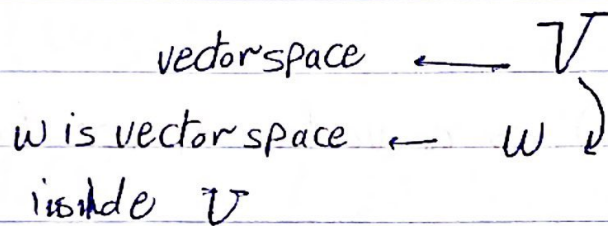 vectorspace ← V
w is vectorspace ← w
inside V